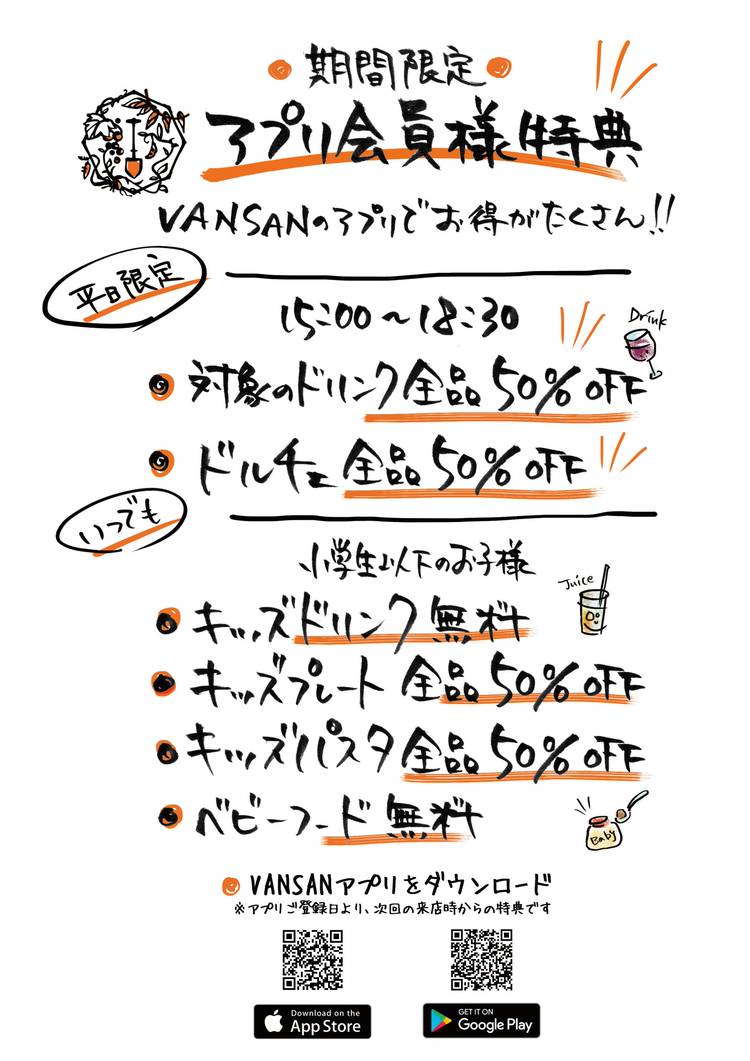 期間限定
アプリ会員様特典
VANSANのアプリでお得がたくさん!!
平日限定
15:00~18:30
Drink
対象のドリンク全品50%OFF
ドルチェ全品50%OFF
いつでも
小学生以下のお子様
Juice
キッズドリンク無料
キッズプレート全品50%OFF
キッズパスタ全品50%OFF
ベビーフード無料
Baby
VANSANアプリをダウンロード
※アプリご登録日より、次回の来店時からの特典です
Download on the
App Store
GET IT ON
Google Play